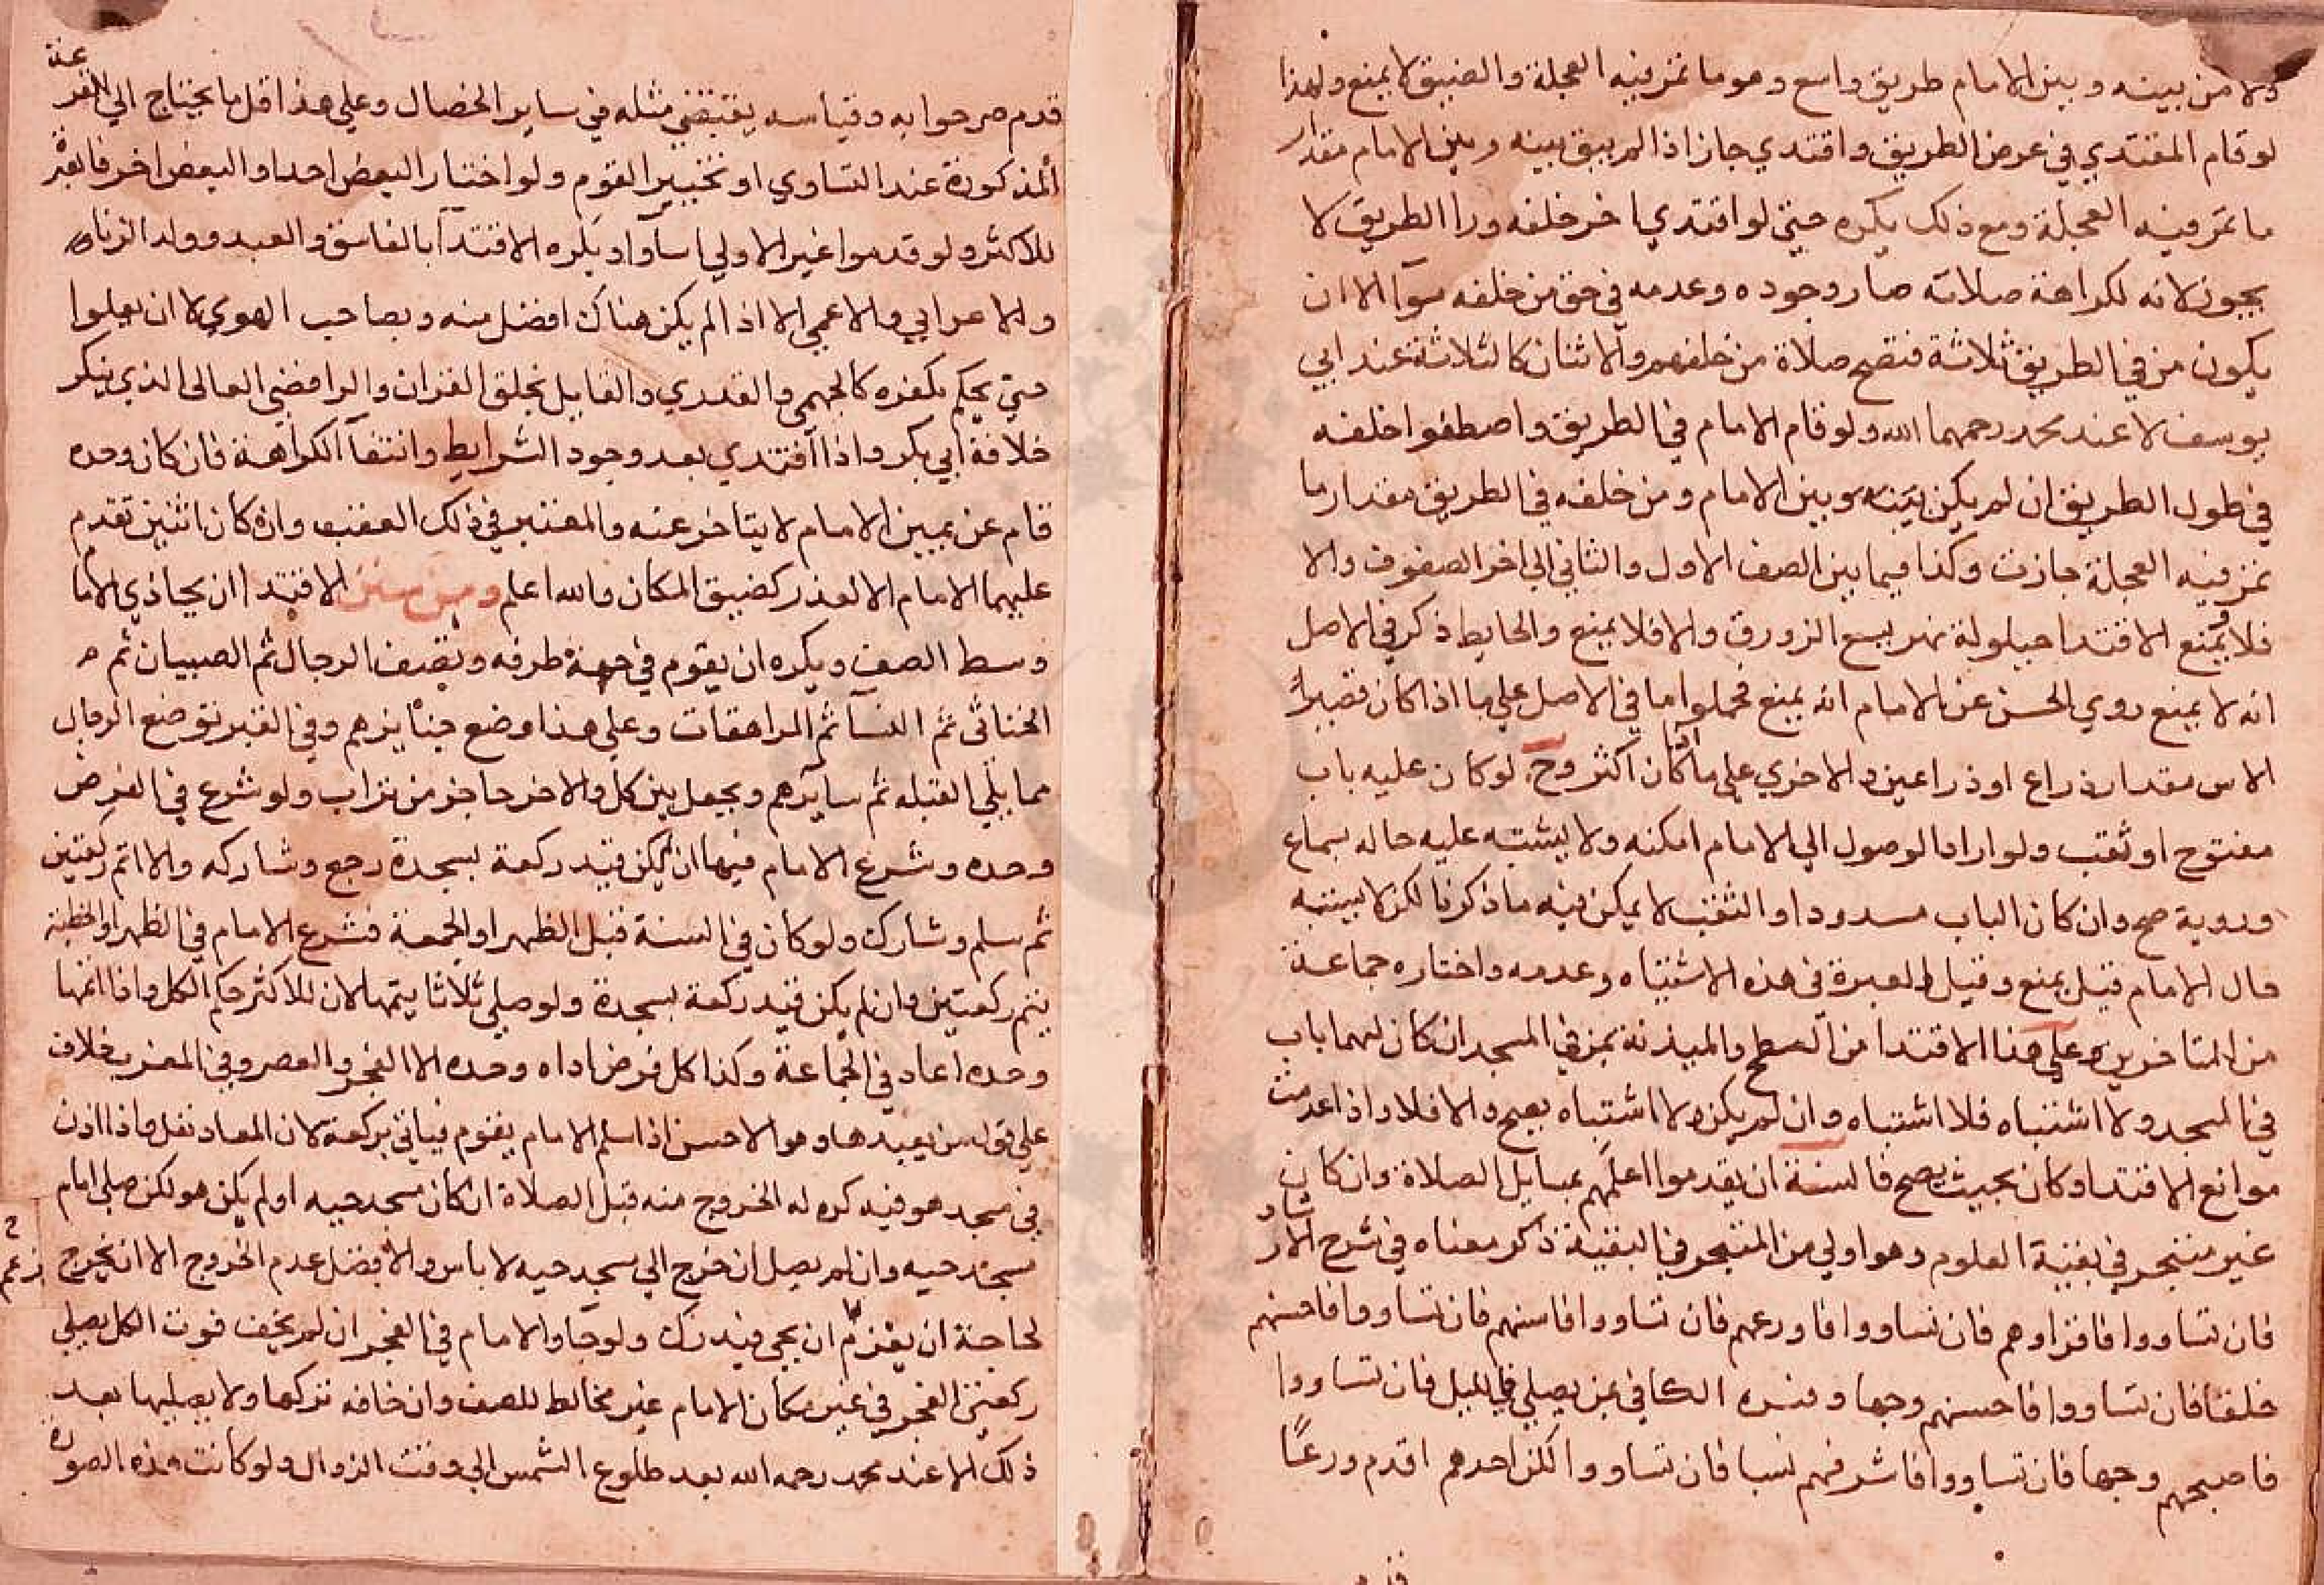 ولا من بينه وبين الامام طريق واسع وهو ما تمر فيه العجلة والضيق لا يمنع ولهذا
لو قام المقتدي في عرض الطريق واقتدي جاز اذا لم يبق بينه وبين الامام مقدار
ما تمر فيه العجلة ومع ذلك يكره حتي لو اقتدي اخر خلفه ورا الطريق لا
يجوز لانه لكراهة صلاته صار وجوده وعدمه في حق من خلفه سوآ الا ان
يكون من في الطريق ثلاثة فتصح صلاة من خلفهم والاثنان كالثلاثة عند ابي
يوسف لا عند محمد رحمهما الله ولو قام الامام في الطريق واصطفوا خلفه
في طول الطريق ان لم يكن بينه وبين الامام ومن خلفه في الطريق مقدار ما
تمر فيه العجلة جازت وكذا فيما بين الصف الاول والثاني الي اخر الصفوف والا
فلا ويمنع الاقتدا حيلولة نهر يسع الزورق والا فلا يمنع والحايط ذكر في الاصل
انه لا يمنع روي الحسن عن الامام انه يمنع فحملوا ما في الاصل علي ما اذا كان قصيرا
الاس مقدار ذراع او ذراعين والاخري علي ما اذا كان اكثر وح لو كان عليه باب
مفتوح او ثقب ولو اراد الوصول الي الامام امكنه ولا يشتبه عليه حاله بسماع
ورؤية صح وان كان الباب مسدودا او الثقب لا يمكن فيه ما ذكرنا لكن لا يشتبه
حال الامام قيل يمنع وقيل العبرة في هذه الاشتباه وعدمه واختاره جماعة
من المتاخرين وعلي هذا الاقتدا من السطح والميذنة بمن في المسجد ان كان لهما باب
في المسجد ولا اشتباه فلا اشتباه وان لم يكن ولا اشتباه يصح والا فلا واذا عدمت
موانع الاقتدا وكان بحيث يصح فالسنة ان يقدموا اعلمهم بمسايل الصلاة وان كان
غير متبحر في بقية العلوم وهو اولي من المتبحر في البقية ذكر معناه في شرح الارشاد
فان تساووا فاقراوهم فان تساووا فاورعهم فان تساووا فاسنهم فان تساووا فاحسنهم
خلقا فان تساووا فاحسنهم وجها وفسره الكافي بمن يصلي في الليل فان تساووا
فاصبحهم وجها فان تساووا فاشرفهم نسبا فان تساووا لكن احدهم اقدم ورعًا
قدم
قدم صرحوا به وقياسه يقتضي مثله في ساير الخصال وعلي هذا اقل ما يحتاج الي القرعة
المذكورة عند التساوي او تخيير القوم ولو اختار البعض احدا والبعض اخر فالعبرة
للاكثر ولو قدموا غير الاولي اساوا ويكره الاقتدآ بالفاسق والعبد وولد الزناه
والاعرابي والاعمي الا اذا لم يكن هناك افضل منه وبصاحب الهوي لا ان يعلوا
حتي يحكم بكفره كالجهمي والقدري والقايل بخلق القران والرافضي الغالي الذي ينكر
خلافة ابي بكر واذا اقتدي بعد وجود الشرايط وانتفآ الكراهة فان كان وحده
قام عن يمين الامام لا يتاخر عنه والمعتبر في ذلك العقب وان كان اثنين تقدم
عليهما الامام الا لعذر كضيق المكان والله اعلم ومن سنن الاقتدا ان يحاذي الاما
وسط الصف ويكره ان يقوم في جهة طرفه وتصف الرجال ثم الصبيان ثم
الخناثي ثم النسآ ثم المراهقات وعلي هذا وضع جنايزهم وفي القبر توضع الرجال
مما يلي القبلة ثم سايرهم ويجعل بين كل والاخر حاجز من تراب ولو شرع في الفرض
وحده وشرع الامام فيها ان لم يكن قيد ركعة بسجدة رجع وشاركه والا اتم ركعتين
ثم سلم وشارك ولو كان في السنة قبل الظهر او الجمعة فشرع الامام في الظهر او الخطبة
يتم ركعتين وان لم يكن قيد ركعة بسجدة ولو صلي ثلاثا يتمها لان للاكثر حكم الكل واذا اتمها
وحده اعاد في الجماعة وكذا كل فرض اداه وحده الا الفجر والعصر وفي المغرب خلاف
علي قول من يعيدها وهو الاحسن اذا سلم الامام يقوم فياتي بركعة لان المعاد نفل واذا اذن
في مسجد هو فيه كره له الخروج منه قبل الصلاة ان كان مسجد حيه او لم يكن هو لكن صلي امام
مسجد حيه وان لم يصل ان خرج الي مسجد حيه لا باس والافضل عدم الخروج الا ان يخرج
لحاجة ان يعزم ان يجي فيدرك ولو جا والامام في الفجر ان لم يخف فوت الكل يصلي
ركعتي الفجر في غير مكان الامام غير مخالط للصف وان خافه تركها ولا يصليها بعد
ذلك الا عند محمد رحمه الله بعد طلوع الشمس الي وقت الزوال ولو كانت هذه الصورة